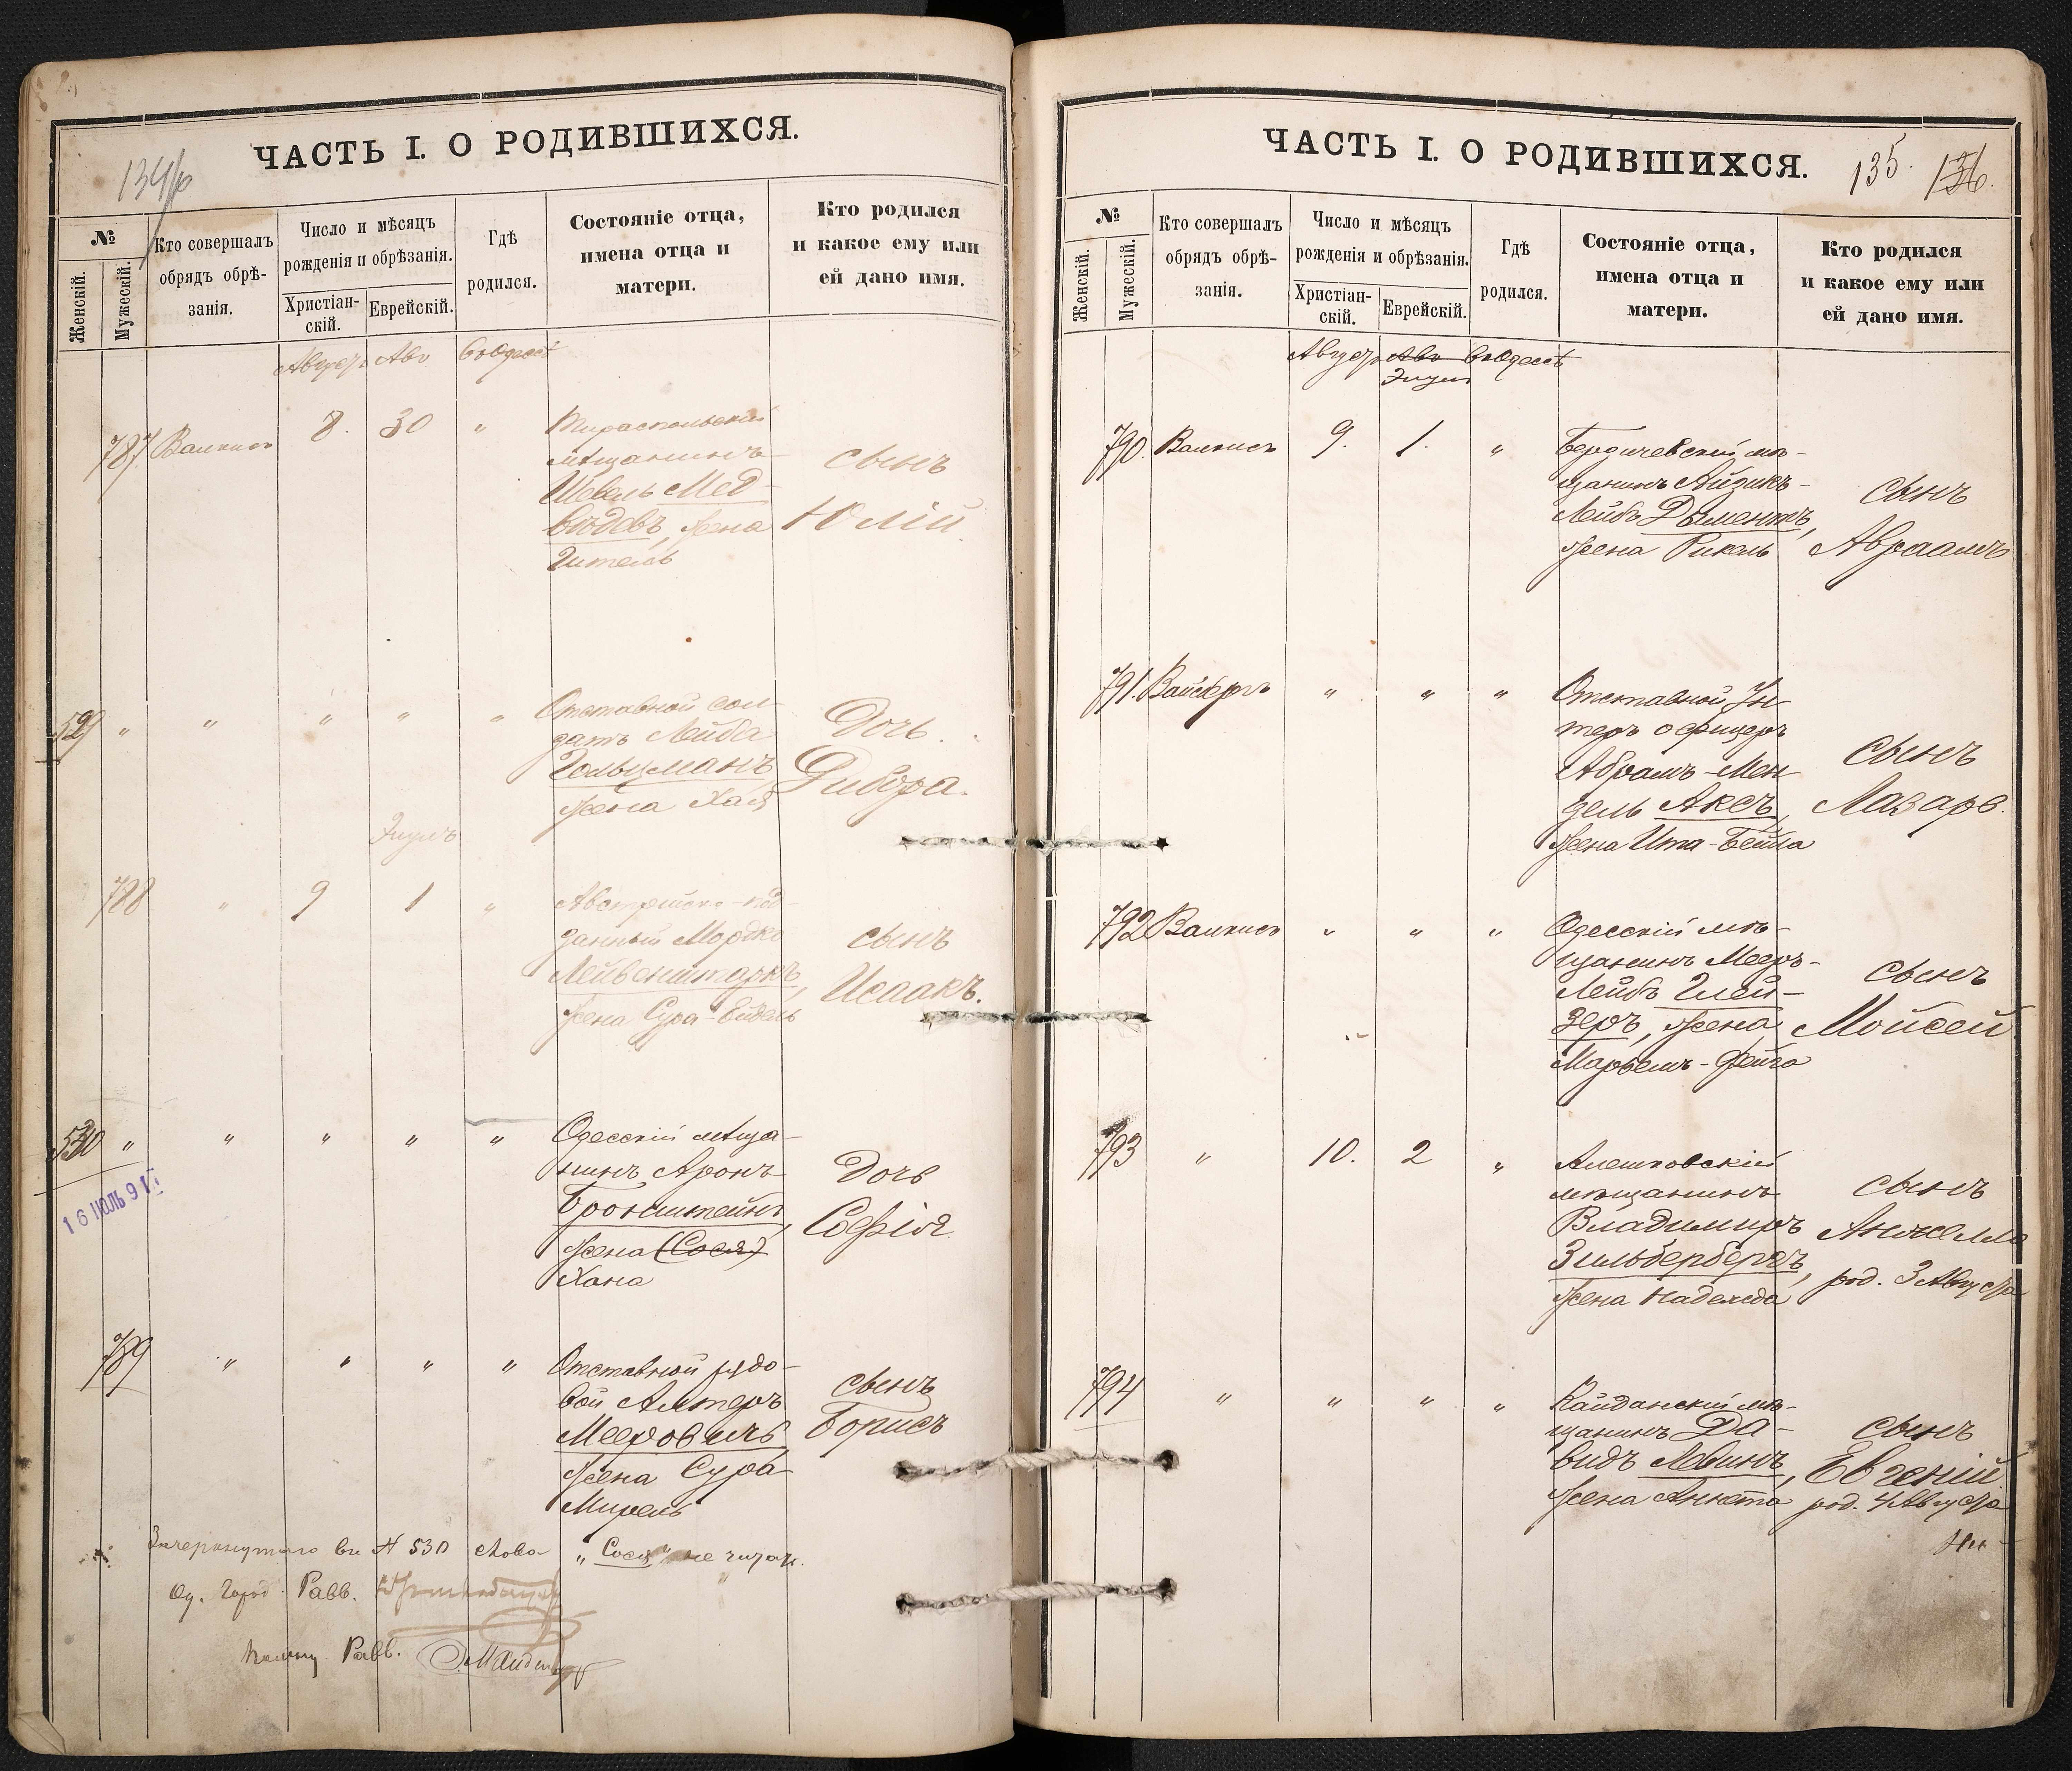 ЧАСТЬ I. О РОДИВШИХСЯ.
134
№
Женскій.
Мужескій.
Кто совершалъ
обрядъ обрѣ-
занія.
Число и мѣсяцъ
рожденія и обрѣзанія.
Христіан-
скій.
Еврейскій.
Гдѣ
родился.
Состояніе отца,
имена отца и
матери.
Кто родился
и какое ему или
ей дано имя.
Август Авъ въ Одессѣ
787. 8. 30 "
Тираспольскій
мѣщанинъ
Шевель Мед-
вѣдевъ, жена
Гитель
сынъ
Юлій.
529 " " " " "
Отставной сол-
датъ Лейба
Гольцманъ
жена Хая
Дочь
Дибора.
Элулъ
788 " 9 1 "
Австрійско-под-
данный Мордко
Лейвенштаркъ,
жена Сура-Ейдель
сынъ
Исаакъ.
530 " " " " "
Одесскій мѣща-
нинъ Аронъ
Бронштейнъ,
жена (Сося)
Хана
Дочь
Софія.
16 ІЮЛЬ 91
789 " " " "
Отставной рядо-
вой Алтеръ
Мееровичъ
жена Сура
Мирель
сынъ
Борисъ
Зачеркнутаго въ № 530 слова "Сося" не читать.
Од. Город. Равв.
Помощ. Равв.
ЧАСТЬ I. О РОДИВШИХСЯ.
135. 136.
№
Женскій.
Мужескій.
Кто совершалъ
обрядъ обрѣ-
занія.
Число и мѣсяцъ
рожденія и обрѣзанія.
Христіан-
скій.
Еврейскій.
Гдѣ
родился.
Состояніе отца,
имена отца и
матери.
Кто родился
и какое ему или
ей дано имя.
Август Авъ въ Одессѣ
Элулъ
790. 9. 1. "
Бердичевскій мѣ-
щанинъ Айзикъ-
Лейбъ Дыментъ,
жена Рикель
сынъ
Авраамъ
791. " " "
Отставной Ун-
теръ офицеръ
Абрамъ-Мен-
дель Аксъ,
жена Ита-Бейла
сынъ
Лазарь.
792 " " "
Одесскій мѣ-
щанинъ Мееръ-
Лейбъ Глей-
зеръ, жена
Марьемъ-Фейга
сынъ
Мойсей.
793 " 10. 2 "
Алешковскій
мѣщанинъ
Владимиръ
Зильбербергъ,
жена Надежда
сынъ
Анжело
род. 3 Августа
794 " " " "
Кайданскій мѣ-
щанинъ Да-
видъ Левинъ,
жена Анюта
сынъ
Евгеній
род. 4 Августа